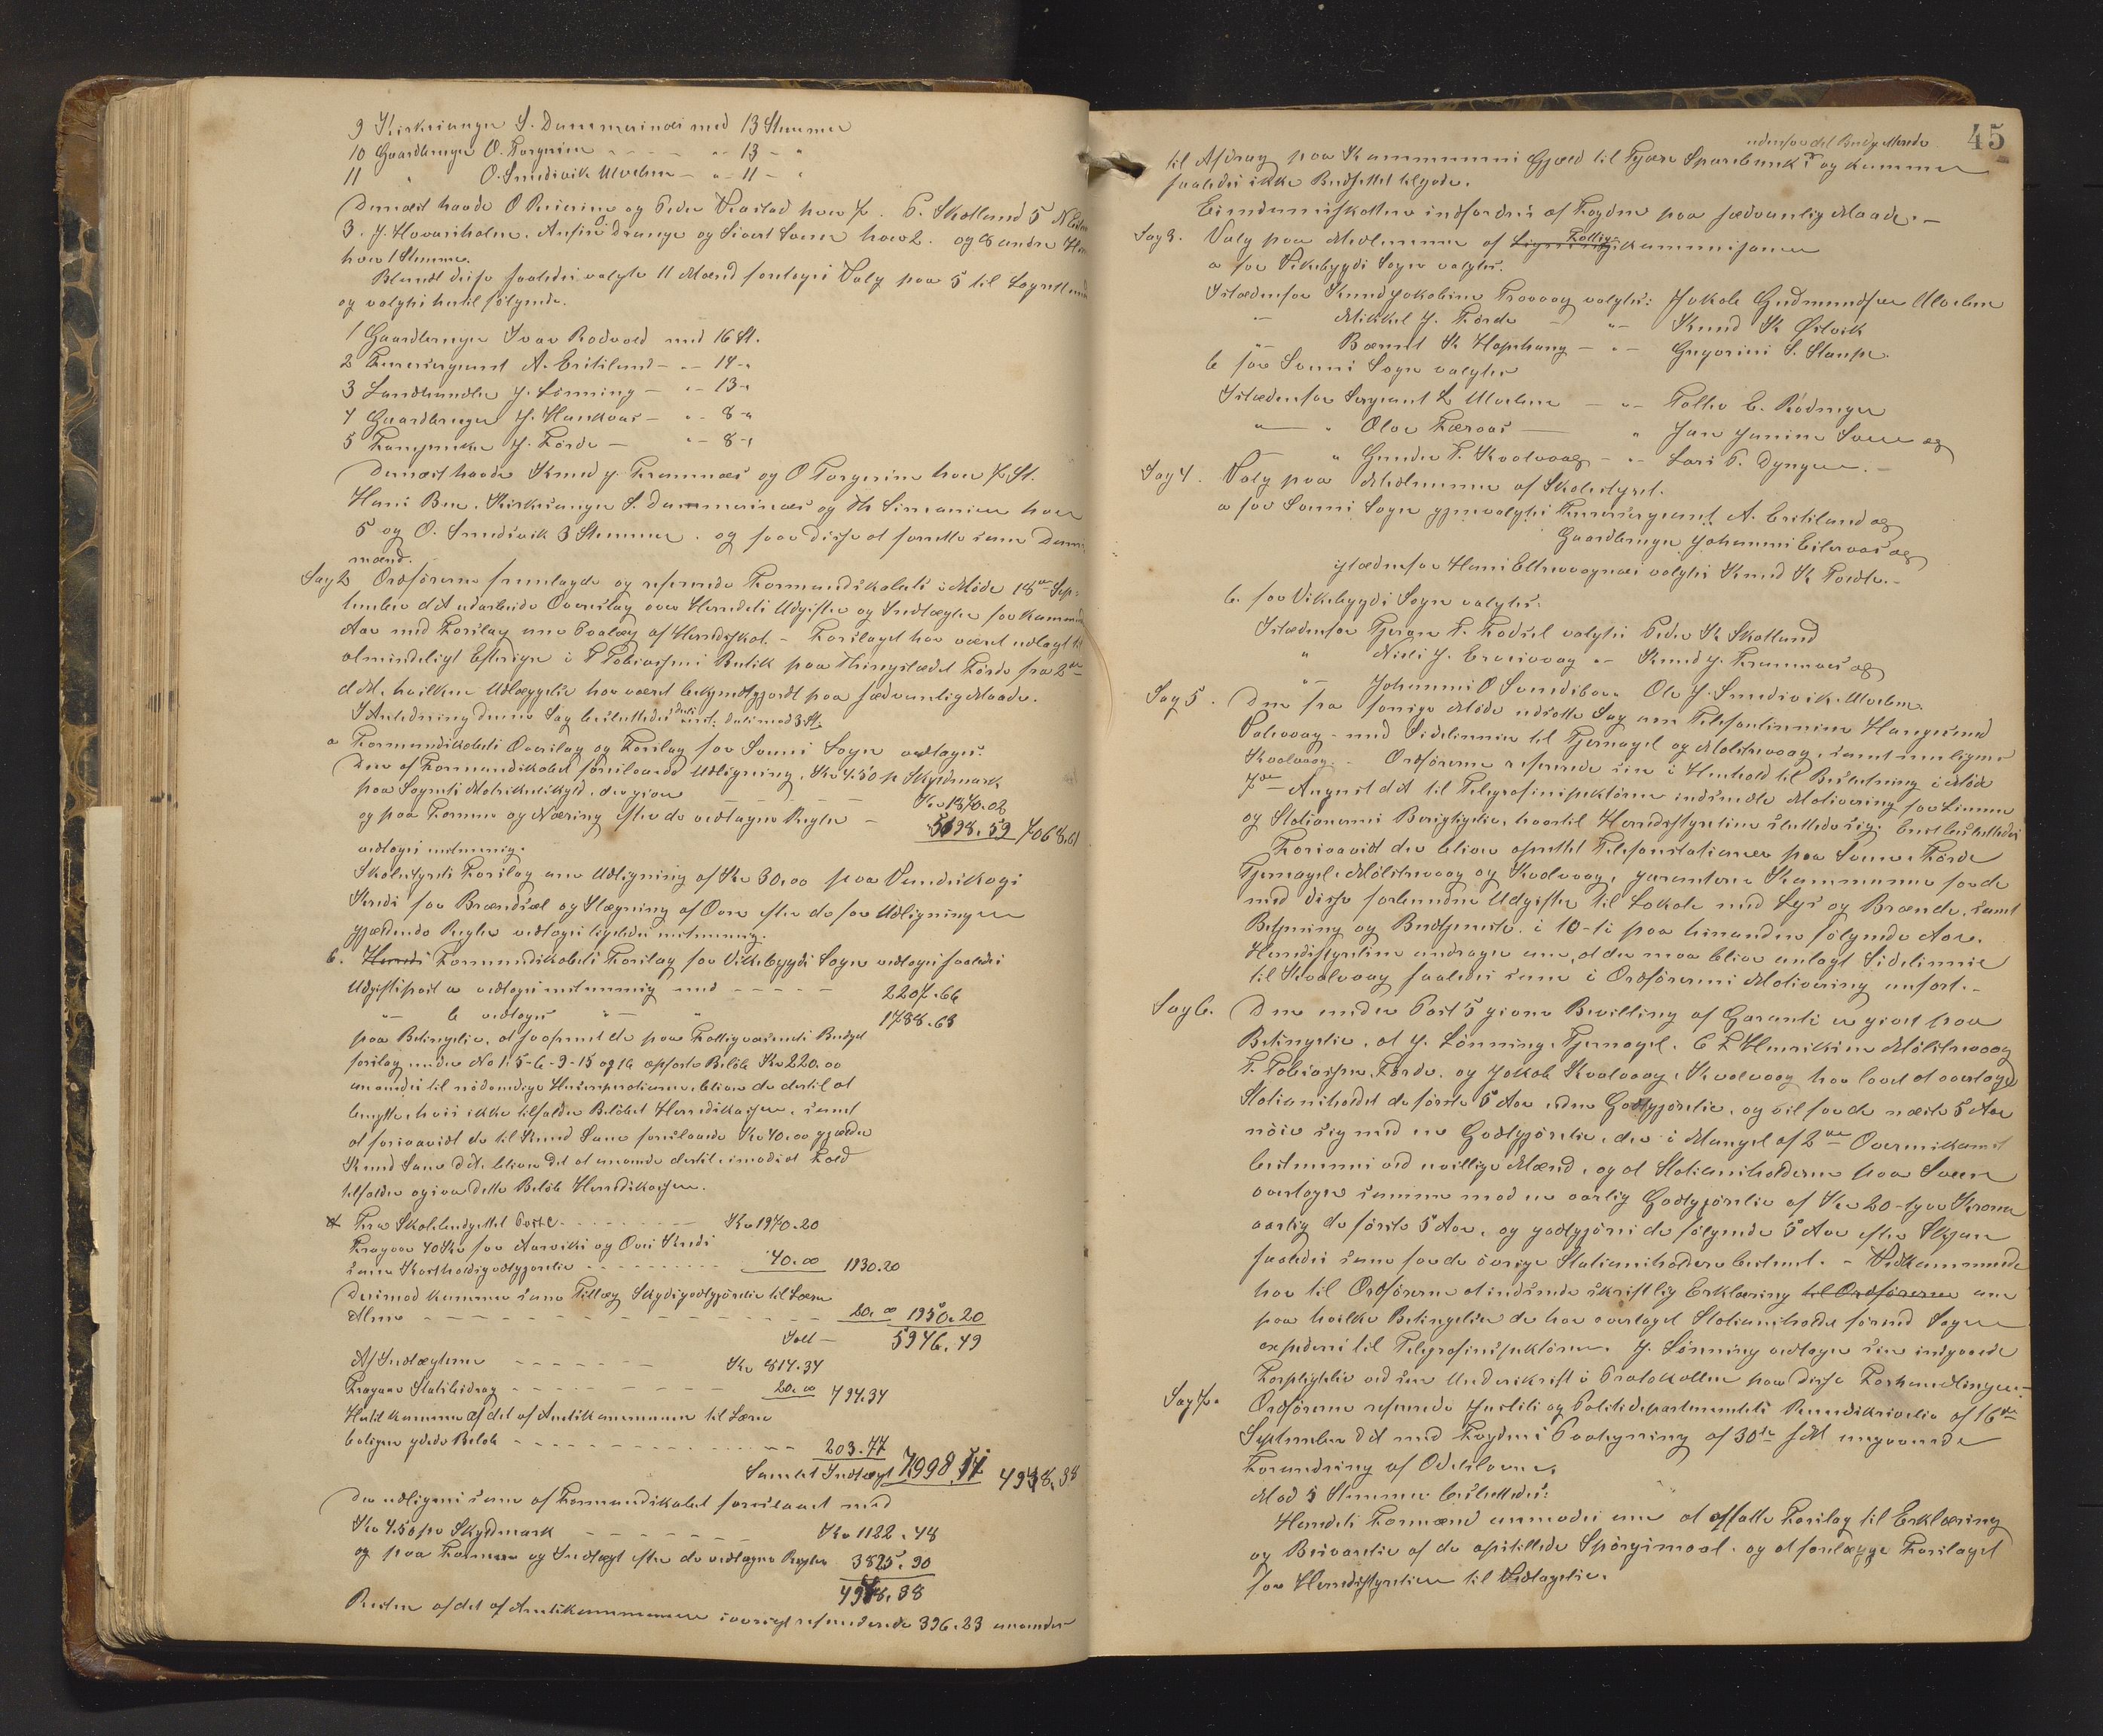 9 Kirkesanger S. Dammersnæs med 13 Stemmer
10 Gaardbruger O. Torgersen - - - - „ - 13 - „
11 „ O. Smedsvik Alvehen - „ - 11 - „
Dernæst havde O Reiersen og Peder Vaastad hver 7. P. Skotland 5
3. J. Hovarsholm. Anfin Drange og Sivert Soen hver 2. og 8 andre
hver 1 Stemme.
Blandt disse saaledes valgte 11 Mænd foretoges Valg paa 5 til
og valgtes hertil følgende.
1 Gaardbruger Ivar Rodvold med 16 St.
2 Furersergeant A. Eritsland - „ - 14 - „
3 Landhandler J. Lønning - „ - 13 - „
4 Gaardbruger J. Haukaas - „ - 8 - „
5 J. Førde - „ - 8 - „
Dernæst havde Knud J. Framnæs og O Torgersen hver 7 St.
Hans Bue. Kirkesanger S. Dammersnæs og Th Simonsen hver
5 og O. Smedsvik 3 Stemmer. og for disse at forrette som
mænd.
Sag 2 Ordføreren fremlagde og refererede Formandskabets i Møde 18de Sep-
tember d A udarbeide Overslag over Herredets Udgifter og Indtægter for kommende
Aar med Forslag om Paalæg af Herredsskat. - Forslaget har været udlagt til
almindeligt Eftersyn i T Tobiassens Butik paa Thingstedet Førde fra 2den
d M. hvilken Udlæggelse har været bekjendtgjordt paa sædvanlig Maade.
I Anledning denne Sag besluttedes
a Formandskabets Overslag og Forslag for Sveens Sogn vedtages:
Den af Formandskabet foreslaaede Udligning, Kr 4.50 pr Skyldmark
paa Sognets Matrikulskyld, der giver - - - Kr 1870.02
og paa Formue og Næring efter de vedtagne Regler - 5198.59 7068.61
vedtoges enstemmig.
Skolestyrets Forslag om Udligning af Kr 30.00 paa Vandaskogs
Kreds for Brændsel og Hægning af Ovn efter de for Udligningen
gjældende Regler vedtoges ligeledes enstemmig.
b. Herreds Formandskabets Forslag for Vikebygds Sogn vedtoges saaledes
Udgiftspost a vedtoges enstemmig med - - - - - 2207.66
„ b vedtoges „ „ 1788.63
paa Betingelse, at saafremt de paa Fattigvæsenets Budget
forslag under No 1. 5-6-9-15 og 16 opførte Beløb Kr 220.00
anvendes til nødvendige Husreparationer, bliver de dertil at
benytte, hvis ikke tilfalder Beløbet Herredskassen, samt
at forsaavidt de til Knud Sane foreslaaede Kr 40.00 gjælder
Knud Sane d.Æ. bliver Det at anvende dertil, imodsat Fald
tilfalder ogsaa dette Beløb Herredskassen.
Fra Skolebudgettet Post C - - - - - - Kr 1970.20
Fragaar 40 Kr for Aarviks og Ous Kreds
som Kostholdsgodtgjørelse - - - - - - 40.00 1930.20
Derimod kommer som Tillæg Skydsgodtgjørelse til Lærer
Alme - - - - - - - - - - - - - 20.00 1950.20
Tals - 5946.49
Af Indtægterne - - - - - - Kr 814.34
Fragaar Statsbidrag - - - - - - 20.00 794.34
Hertil kommer af det af Amtskommunen til Lærer
boliger ydede Beløb - - - - - - - - 203.77
Samlet Indtægt 998.11 4948.38
Der udlignes som af Formandskabet foreslaaet med
Kr 4.50 pr Skyldmark - - - - - - Kr 1122.48
og paa Formue og Indtægt efter de vedtagne Regler 3825.90
4948.38
Resten af det af Amtskommunen iøvrigt refunderede 396.23 anvendes
45
udenfor det Budgetterede
til Afdrag paa Kommunens Gjæld til Fjære Sparebank og kommer
saaledes ikke Budgettet tilgode.
Eiendomsskatten indfordres af Fogden paa sædvanlig Maade. -
Sag 3. Valg paa Medlemmer af Fattigkommissionen
a for Vikebygds Sogn valgtes.
Istedenfor Knud Jakobsen Troovaag valgtes: Jakob Gudmundsen Alvehen
„ Mikkel J. Førde - „ - Knud K Ørevik
„ Bærent K Haphaug - „ - Gregorius S. Staupe.
b for Sveens Sogn valgtes
Istedenfor Sergeant L Alvehen - „ - Tolle C. Rødnugen
„ „ Olav Færaas - „ Jan Jansen Sveen og
„ Gunder T. Kvalvaag - „ - Lars P. Dyngen. -
Sag 4. Valg paa Medlemmer af Skolestyret.
a for Sveens Sogn gjenvalgtes Furersergeant A. Eritsland og
Gaardbruger Johannes Eileraas og
istedenfor Hans Ellevaagnæs valgtes Knud K Tvedte. -
b. for Vikebygds Sogn valgtes:
Istedenfor Fjeran F. Fodsel valgtes Peder K Skotland
„ Niels J. Erosvaag „ - Knud J. Framnæs og
„ Johannes O Svendsbo „ - Ole J. Smedsvik Alvehen.
Sag 5. Den fra forrige Møde udsatte Sag om Telefonlinien Haugesund
Valevaag - med Sidelinier til Tjernagel og Mølstrevaag, samt muligens
Kvalvaag. - Ordføreren refererede sin i Henhold til Beslutning i Møde
7de August d A til Telegrafinspektøren indsendte Motivering for Linien
og Stationernes Berettigelse, hvortil Herredsstyrelsen sluttede sig. Enst besluttedes
Forsaavidt der bliver oprettet Telefonstationer paa Sveen, Førde
Tjernagel, Mølstrevaag og Kvalvaag, garanterer Kommunen for de
med disse forbundne Udgifter til Lokale med Lys og Brænde, samt
Betjening og Budtjeneste. i 10-ti paa hinanden følgende Aar.
Herredsstyrelsen andrager om, at der maa blive anlagt Sidelinie
til Kvalvaag saaledes som i Ordførerens Motivering anført. -
Sag 6. Den under Post 5 givne Bevilling af Garanti er givet paa
Betingelse, at J. Lønning, Tjernagel, C T Henriksen Mølstrevaag
T. Tobiassen, Førde, og Jakob Kvalvaag, Kvalvaag har lovet at overtage
Stationsholdet de første 5 Aar uden Godtgjørelse, og vil for de næste 5 Aar
nøie sig med en Godtgjørelse, der i Mangel af Overenskomst
bestemmes ved uvillige Mænd, og at Stationsholderen paa Sveen
overtager samme mod en aarlig Godtgjørelse af Kr 20 - tyve Kroner
aarlig de første 5 Aar, og godtgjøres de følgende 5 Aar efter Skjøn
saaledes som for de øvrige Stationsholdere bestemt. - Vedkommende
har til Ordføreren at indsende skriftlig Erklæring til Ordføreren om
paa hvilke Betingelser de har overtaget Stationsholdet førend Sagen
expederes til Telegrafinspektøren. J. Lønning vedtager sin indgaaede
Forpligtelse ved sin Underskrift i Protokollen paa disse Forhandlinger. -
Sag 7. Ordføreren refererede Justits og Politidepartementets Rundskrivelse af 16de
September d A med Fogdens Paategning af 30te s M angaaende
Forandring af Odelsloven.
Mod 5 Stemmer besluttedes:
Herredets Formænd anmodes om at affatte Forslag til Erklæring
og Besvarelse af de opstillede Spørgsmaal. og at forelægge Forslaget
for Herredsstyrelsen til Vedtagelse.